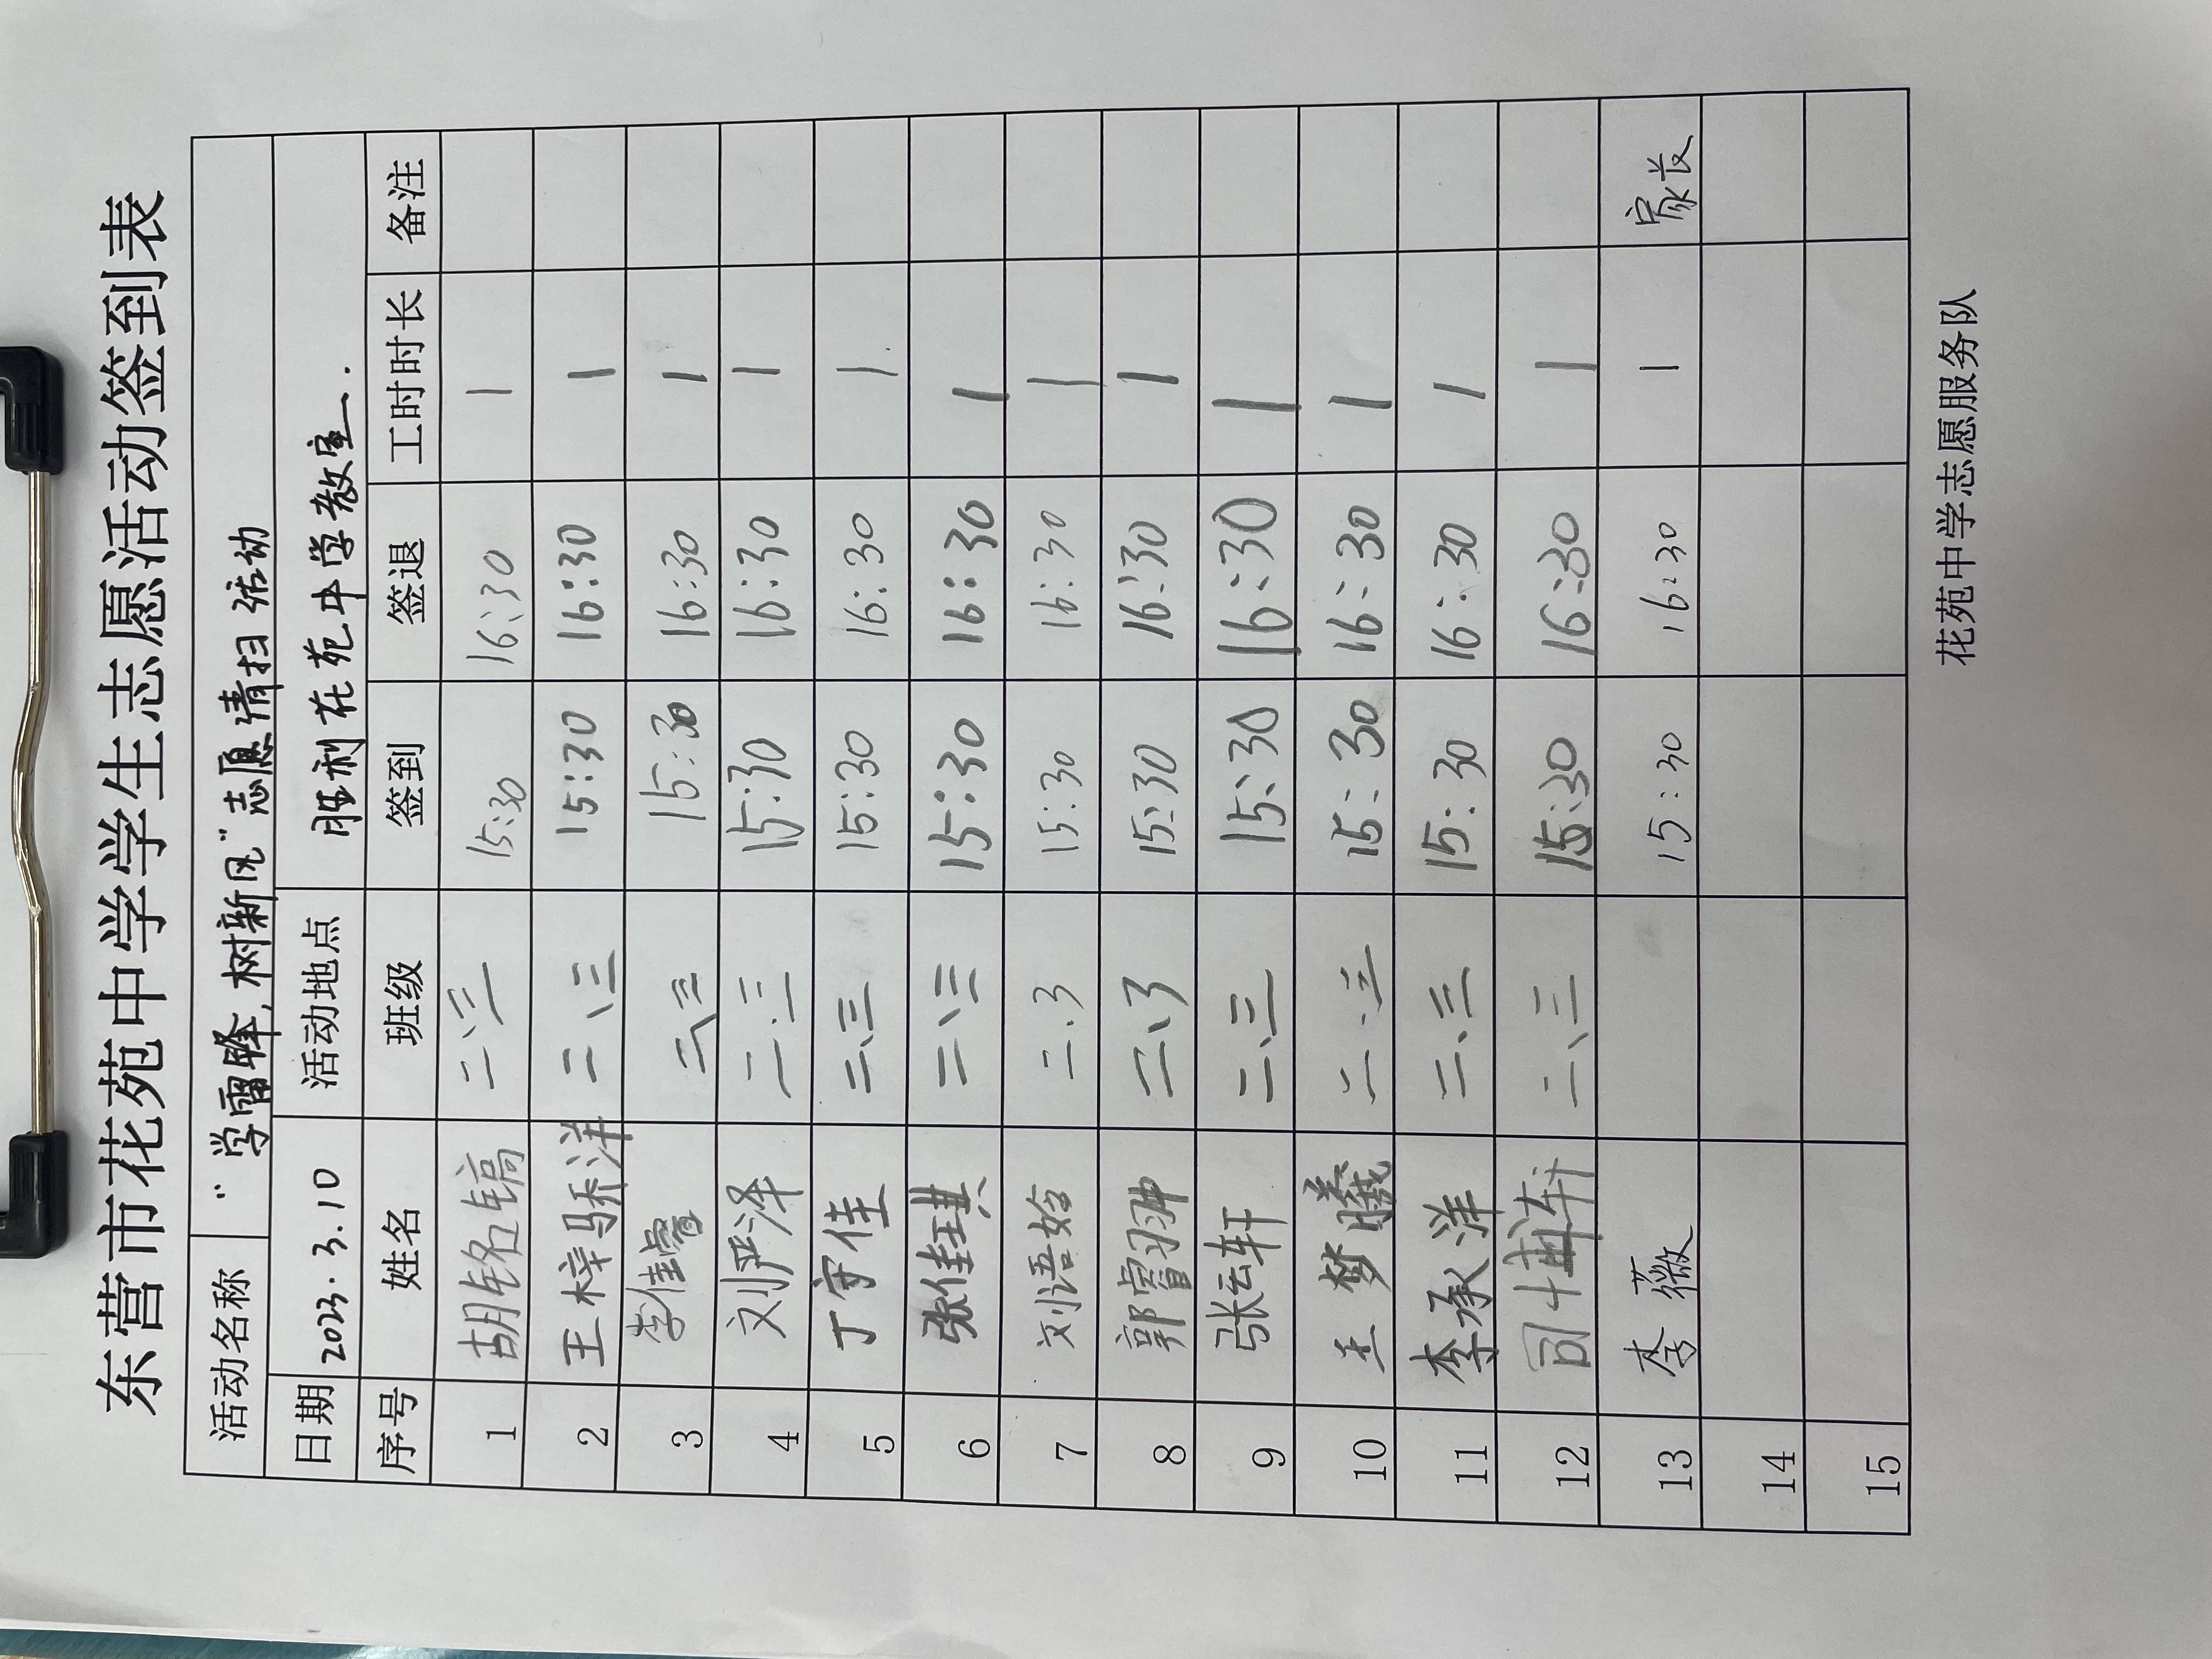 东营市花苑中学学生志愿活动签到表
活动名称 “学雷锋,树新风”志愿清扫活动
日期 2023.3.10 活动地点 胜利花苑中学教室.
序号 姓名 班级 签到 签退 工时时长 备注
1 胡铭镐 二、三 15:30 16:30 1
2 王梓骄洋 二、三 15:30 16:30 1
3 李佳霖 二、三 15:30 16:30 1
4 刘严泽 二.三 15:30 16:30 1
5 丁守佳 二、三 15:30 16:30 1
6 张佳琪 二、三 15:30 16:30 1
7 刘语妗 二.3 15:30 16:30 1
8 郭睿翀 二、3 15:30 16:30 1
9 张云轩 二、三 15:30 16:30 1
10 王梦曦 二.三 15:30 16:30 1
11 李承洋 二、三 15:30 16:30 1
12 二、三 15:30 16:30 1
13 李薇 15:30 16:30 1 家长
14
15
花苑中学志愿服务队